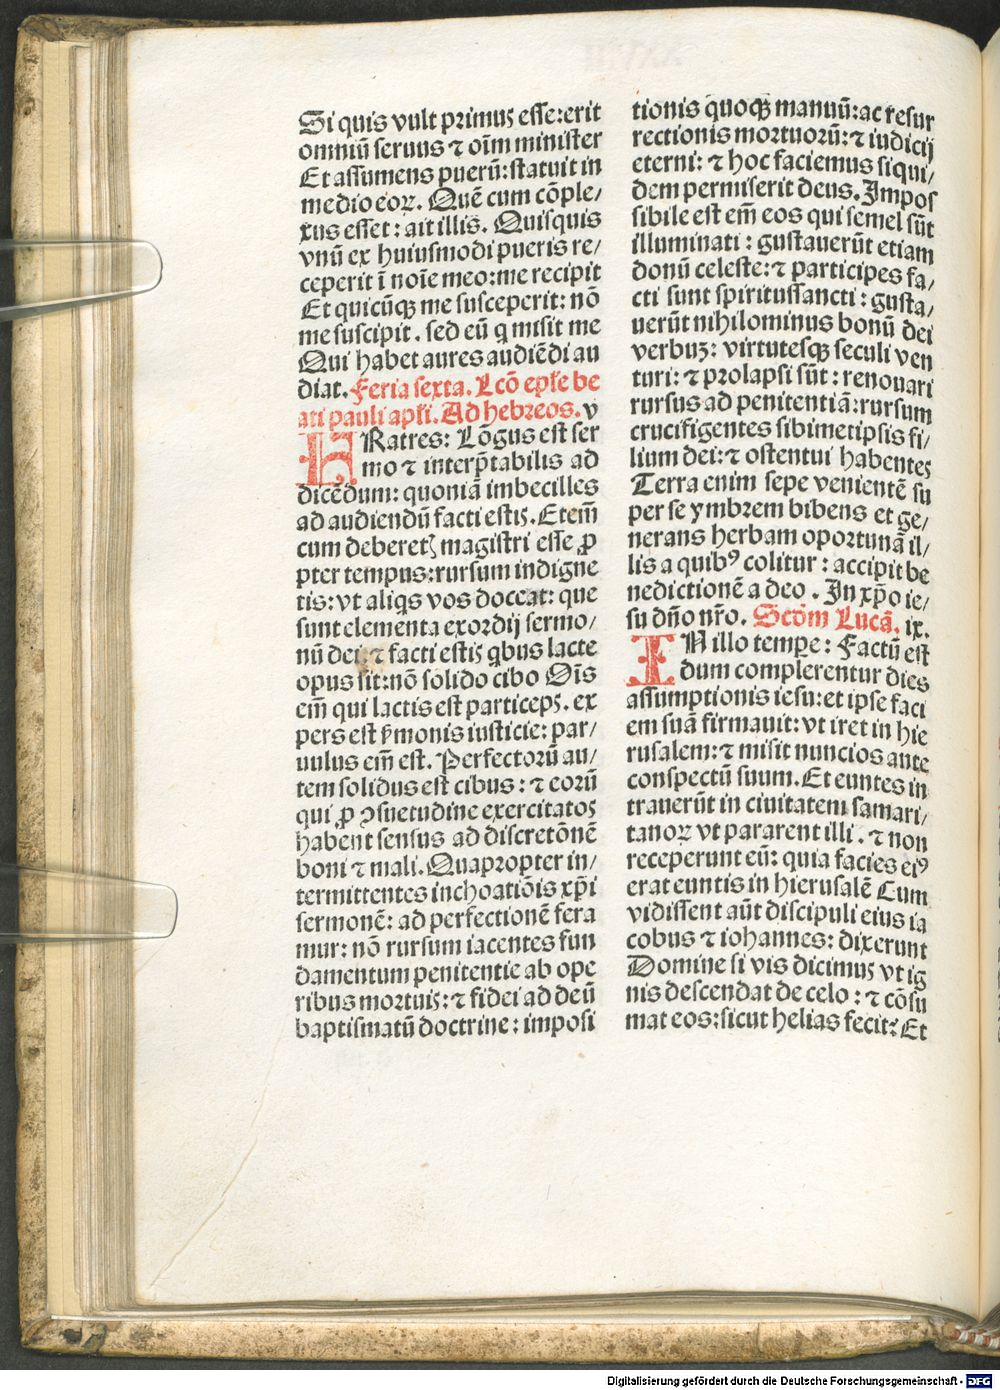 Si quis vult primus esse: erit
omniū seruus ⁊ oīm minister
Et assumens puerū: statuit in
medio eoꝝ. Quē cum cōple⸗
xus esset: ait illis. Quisquis
vnū ex huiusmodi pueris re⸗
ceperit ī noīe meo: me recipit
Et quicūqꝫ me susceperit: nō
me suscipit. sed eū q misit me
Qui habet aures audiēdi au
diat. Feria sexta. Lcō epl̄e be
ati pauli apl̄i. Ad hebreos. v
FRatres: Lōgus est ser
mo ⁊ interp̄tabilis ad
dicēdum: quoniā imbecilles
ad audiendū facti estis. Etem̄
cum deberetꝭ magistri esse ꝓ
pter tempus: rursum indigne
tis: vt aliqs vos doceat: que
sunt elementa exordij sermo⸗
nū dei: ⁊ facti estis qbus lacte
opus sit: nō solido cibo Oīs
em̄ qui lactis est particeps. ex
pers est ẜmonis iusticie: par⸗
uulus em̄ est. Perfectorū au⸗
tem solidus est cibus: ⁊ eorū
qui ꝓ ꝯsuetudine exercitatos
habent sensus ad discretōnē
boni ⁊ mali. Quapropter in⸗
termittentes inchoatiōis xp̄i
sermonē: ad perfectionē fera
mur: nō rursum iacentes fun
damentum penitentie ab ope
ribus mortuis: ⁊ fidei ad deū
baptismatū doctrine: imposi
tionis quoqꝫ manuū: ac resur
rectionis mortuorū: ⁊ iudicij
eterni: ⁊ hoc faciemus siqui⸗
dem permiserit deus. Impos
sibile est em̄ eos qui semel sūt
illuminati: gustauerūt etiam
donū celeste: ⁊ participes fa⸗
cti sunt spiritussancti: gusta⸗
uerūt nihilominus bonū dei
verbuꝫ: virtutesqꝫ seculi ven
turi: ⁊ prolapsi sūt: renouari
rursus ad penitentiā: rursum
crucifigentes sibimetipsis fi⸗
lium dei: ⁊ ostentui habentes
Terra enim sepe venientē su
per se ymbrem bibens et ge⸗
nerans herbam oportunā il⸗
lis a quibꝰ colitur: accipit be
nedictionē a deo. In xp̄o ie⸗
su dn̄o nr̄o. Scd̄m Lucā. ix.
IN illo tempe: Factū est
dum complerentur dies
assumptionis iesu: et ipse faci
em suā firmauit: vt iret in hie
rusalem: ⁊ misit nuncios ante
conspectū suum. Et euntes in
trauerūt in ciuitatem samari⸗
tanoꝝ vt pararent illi. ⁊ non
receperunt eū: quia facies eiꝰ
erat euntis in hierusalē Cum
vidissent aūt discipuli eius ia
cobus ⁊ iohannes: dixerunt
Domine si vis dicimus vt ig
nis descendat de celo: ⁊ cōsu
mat eos: sicut helias fecit? Et
Digitalisierung gefördert durch die Deutsche Forschungsgemeinschaft - DFG